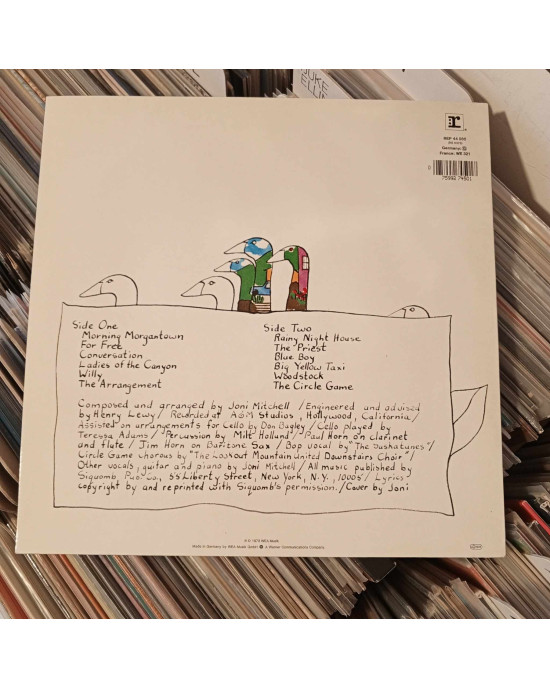 UKE
ELLIN
r
REP 44 085
Germany:
France: WE 321
0
75992 74501
Side One
Morning Morgantown
For Free
Conversation
Ladies of the Canyon
Willy
The Arrangement
Side Two
Rainy Night House
The Priest
Blue Boy
Big Yellow Taxi
Woodstock
The Circle Game
Composed and arranged by Joni Mitchell / Engineered and advised
by Henry Lewy / Recorded at A&M Studios, Hollywood, California/
Assisted on arrangements for Cello by Don Bagley / Cello played by
Teressa Adams / Percussion by Milt Holland / Paul Horn on clarinet
and flute / Jim Horn on Baritone Sax / Bop vocal by "The Saskatunes"/
Circle Game chorous by "The Lookout Mountain United Downstairs Choir"/
Other vocals, guitar and piano by Joni Mitchell / All music published by
Siquomb Pub. Co., 55 Liberty Street, New York, N.Y., 10005/ Lyrics
copyright by and reprinted with Siquomb's permission. / Cover by Joni
Made in Germany by WEA Musik GmbH A Warner Communications Company